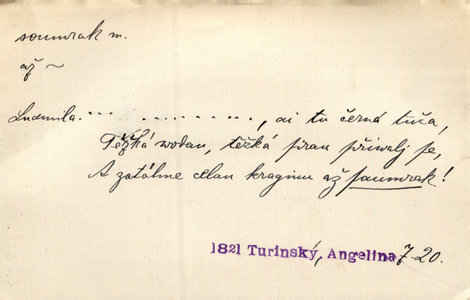 soumrak m.
až ~
Ludmila ... ........, ai tu černá tuča,
Těžká wodau, těžká prau přiwalj se,
A zatáhne celau kraginu až saumrak!
1821 Turinský, Angelina 7.20.